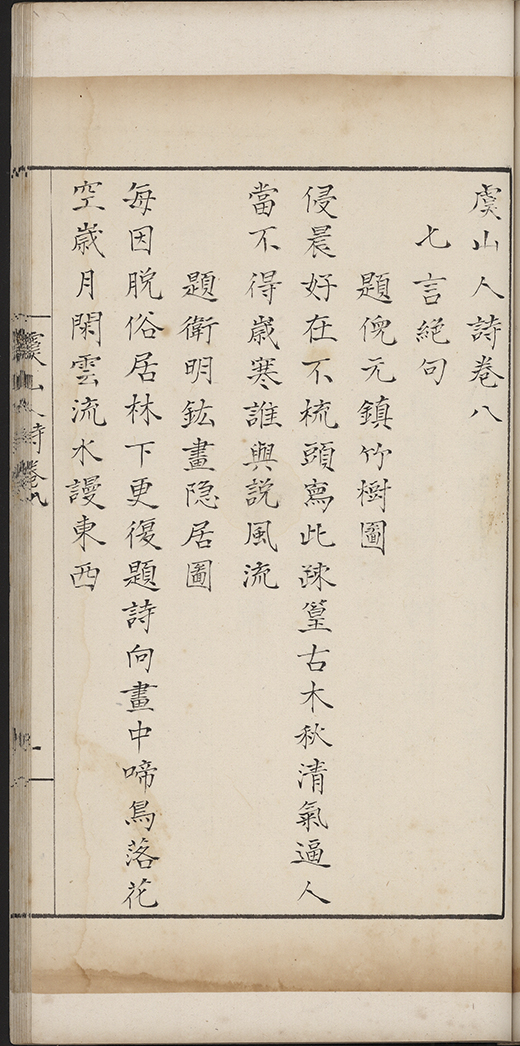 虞山人詩卷八
七言絕句
題倪元鎮竹樹圖
侵晨好在不梳頭寫此疎篁古木秋清氣逼人
當不得歲寒誰與說風流
題衛明鉉畫隐居圖
每因脫俗居林下更復題詩向畫中啼鳥落花
空歲月閑雲流水謾東西
虞山人詩卷八